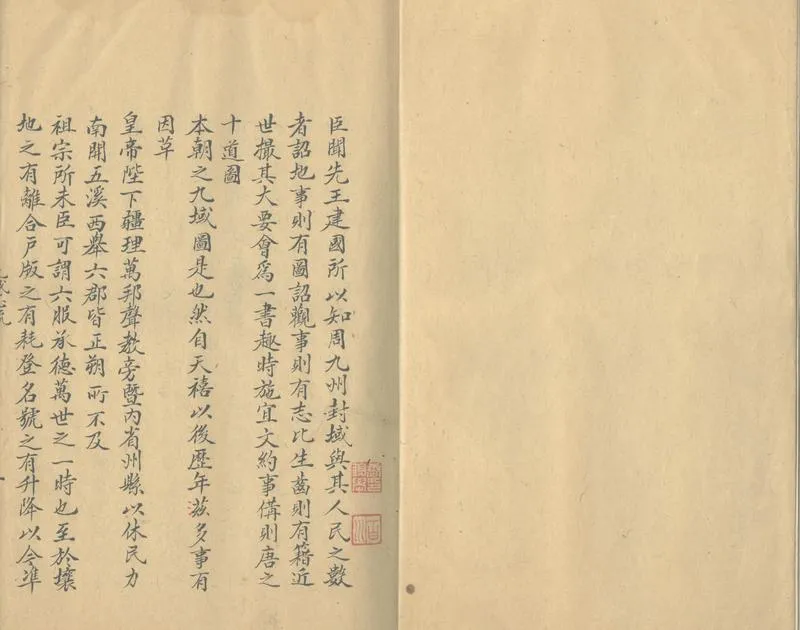 臣聞先王建國所以知周九州封域與其人民之數
者詔地事則有圖詔觀事則有志比生齒則有籍近
世撮其大要會爲一書趣時施宜文約事備則唐之
十道圖
本朝之九域圖是也然自天禧以後歷年茲多事有
因革
皇帝陛下疆理萬邦聲教旁暨內省州縣以休民力
南開五溪西舉六郡皆正朔所不及
祖宗所未臣可謂六服承德萬世之一時也至於壤
地之有離合戶版之有耗登名號之有升降以今準